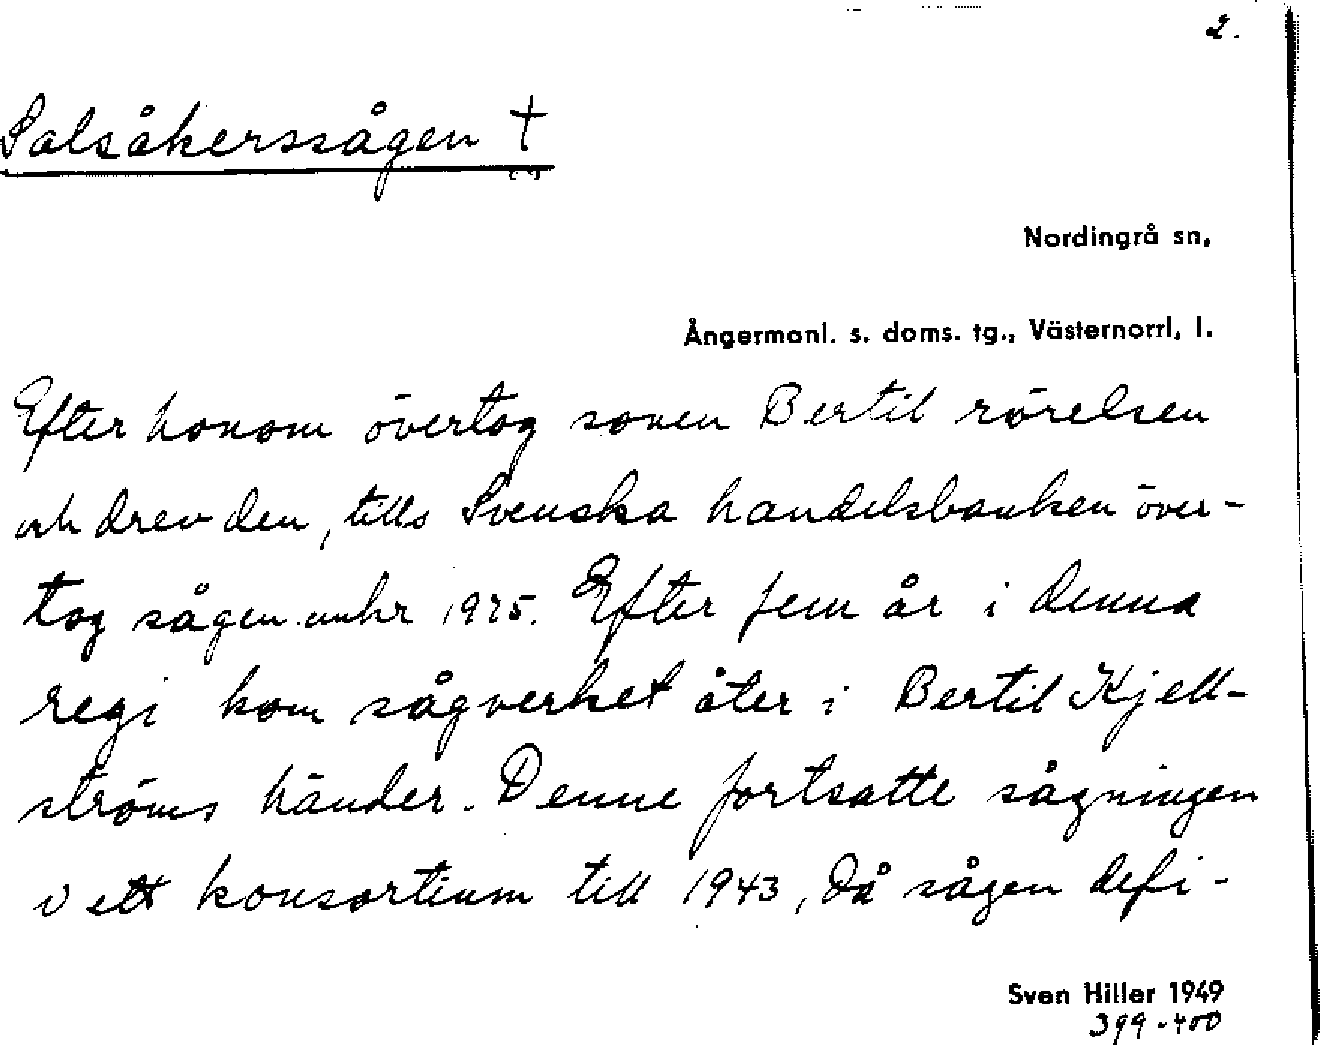 2.
Salsåkerssågen †
Nordingrå sn,
Ångermanl. s. doms. tg., Västernorrl. l.
Efter honom övertog sonen Bertil rörelsen
och drev den, tills Svenska handelsbanken över-
tog sågen omkr 1925. Efter fem år i denna
regi kom sågverket åter i Bertil Kjell-
ströms händer. Denne fortsatte sågningen
i ett konsortium till 1943, då sågen defi-
Sven Hiller 1949
399-400